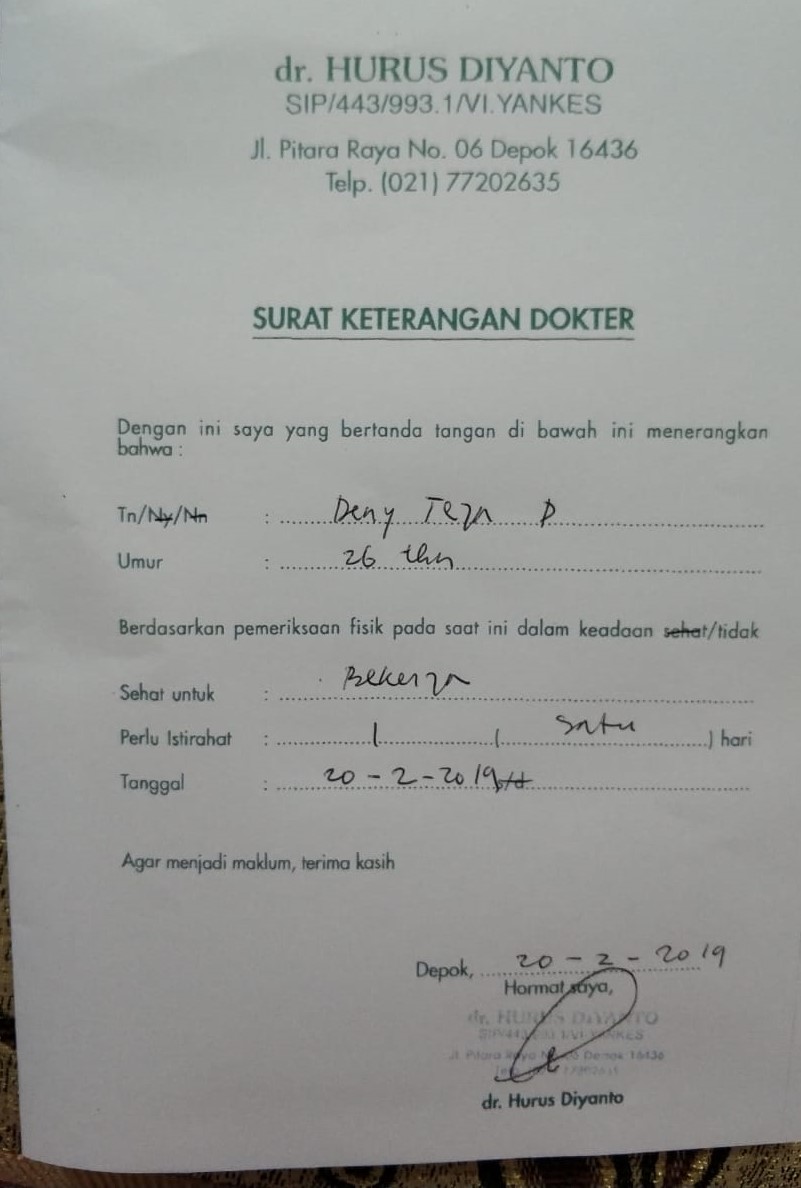 dr. HURUS DIYANTO
SIP/443/993.1/VI.YANKES
Jl. Pitara Raya No. 06 Depok 16436
Telp. (021) 77202635
SURAT KETERANGAN DOKTER
Dengan ini saya yang bertanda tangan di bawah ini menerangkan
bahwa :
Tn/Ny/Nn : Deny Teja P
Umur : 26 thn
Berdasarkan pemeriksaan fisik pada saat ini dalam keadaan sehat/tidak
Sehat untuk : Bekerja
Perlu Istirahat : 1 ( Satu ) hari
Tanggal : 20 - 2 - 2019
Agar menjadi maklum, terima kasih
Depok, 20 - 2 - 2019
Hormat saya,
dr. HURUS DIYANTO
Jl. Pitara Raya No. 06 Depok 16436
dr. Hurus Diyanto